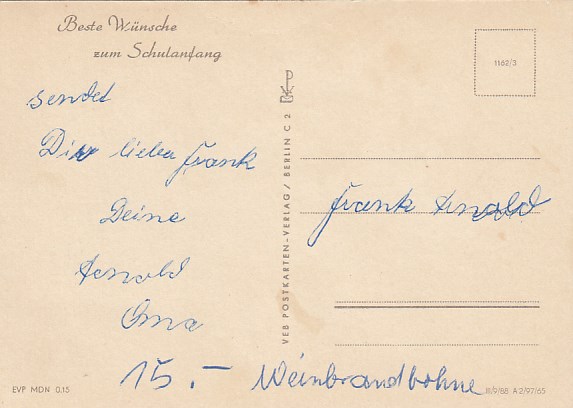 Beste Wünsche
zum Schulanfang
sendet
Dir lieber Frank
Deine
Arnold
Oma
15.- Weinbrandbohne
VEB POSTKARTEN-VERLAG / BERLIN C 2
1162/3
Frank Arnold
EVP MDN 0.15
III/9/88 A 2/97/65